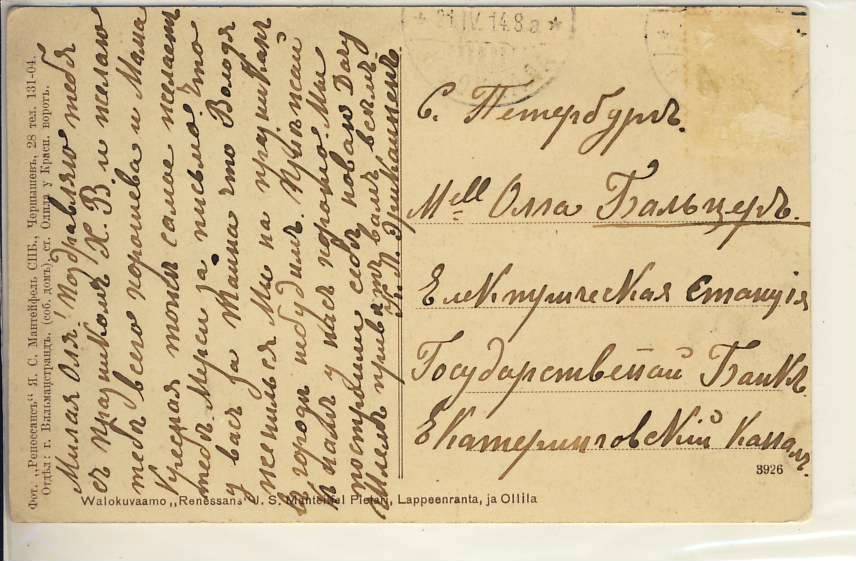 Фот. „Ренессансъ“ Я. С. Мантейфель СПБ., Чернышевъ, 28 тел. 131-04.
Отдѣл: г. Вильманстрандъ. (соб. домъ). ст. Олила у Красн. воротъ.
Милая Оля! Поздравляю тебя
съ праздникомъ Х. В. и желаю
тебѣ всего хорошева и Мама
Кресная тоже самое желаетъ
тебѣ. Мерси за письмо. Что
у васъ за тайна что Володя
женился. Ми на празникахъ
в городѣ небудимъ. Пріѣжай
к намъ у насъ хорошо. Ми
построили себѣ новаю Дачу
Шлемъ привѣтъ вамъ всѣмъ
*21.IV.14.8a*
С. Петербургъ.
Mell Олга Бальцеръ.
Електрическая Станція
Государственай Банкъ
Екатерингофскій каналъ
3926
Walokuvaamo „Renessans“ J. S. Manteifel Pietari, Lappeenranta, ja Ollila